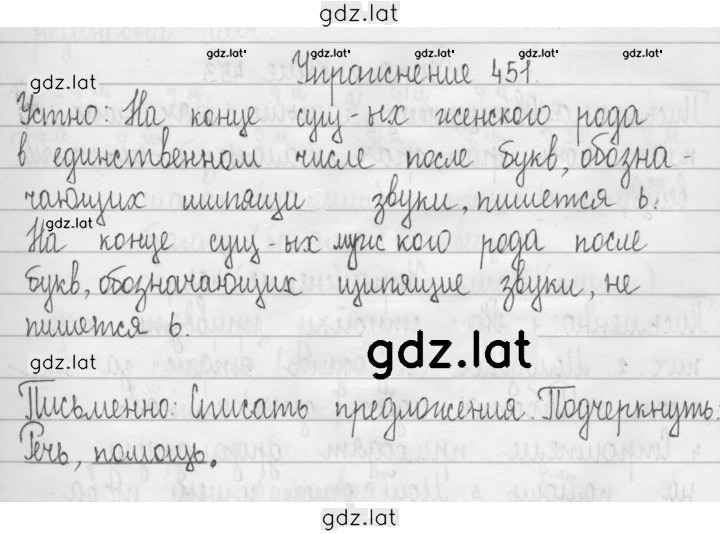 gdz.lat
gdz.lat gdz.lat gdz.lat gdz.lat gdz.lat
Упражнение 451.
gdz.lat
Устно: На конце сущ-ых женского рода
в единственном числе после букв, обозна
чающих шипящи звуки, пишется ь.
gdz.lat
На конце сущ-ых мужского рода после
букв, обозначающих шипящие звуки, не
пишется ь.
gdz.lat
gdz.lat
Письменно: Списать предложения. Подчеркнуть:
Речь, помощь.
gdz.lat